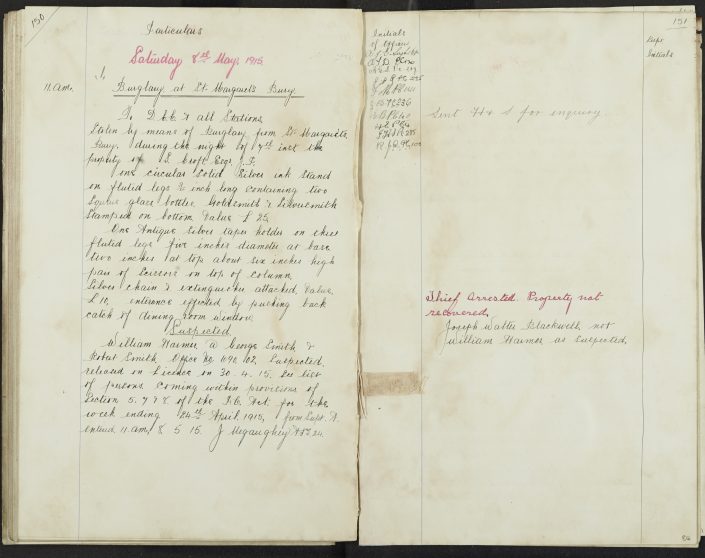 150
Particulars
Saturday 8th May, 1915
11. am.
Burglary at St. Margarets Bury.
To D.C.C. & all Stations
Stolen by means of Burglary from St. Margarets
Bury. during the night of 7th inst the
property of S. Croft Esqr J.P.
one circular solid Silver ink stand
on fluted legs inch long containing two
Square glass bottles Goldsmith & Silversmith
Stamped on bottom Value £ 25.
One Antique Silver taper holder on three
fluted legs five inches diameter at base
two inches at top about six inches high
pair of Scissors on top of column,
Silver chain & extinguisher attached, Value
£ 10. entrance effected by pushing back
catch of dining room window.
Suspected
William Harmer a George Smith &
Robert Smith, Office No. 102, Suspected.
released on Licence on 30. 4. 15. See list
of persons coming within provisions of
Section 5. 7 & 8 of the P.C. Act for the
week ending 24th April 1915, from Supt. A.
entered 11. am, 8. 5. 15. J Megaughey
Initials
of Officers
151
Dept
Initials
Sent H & S for enquiry.
Thief Arrested. Property not
recovered,
Joseph Walter Blackwell, not
William Harmer as suspected,